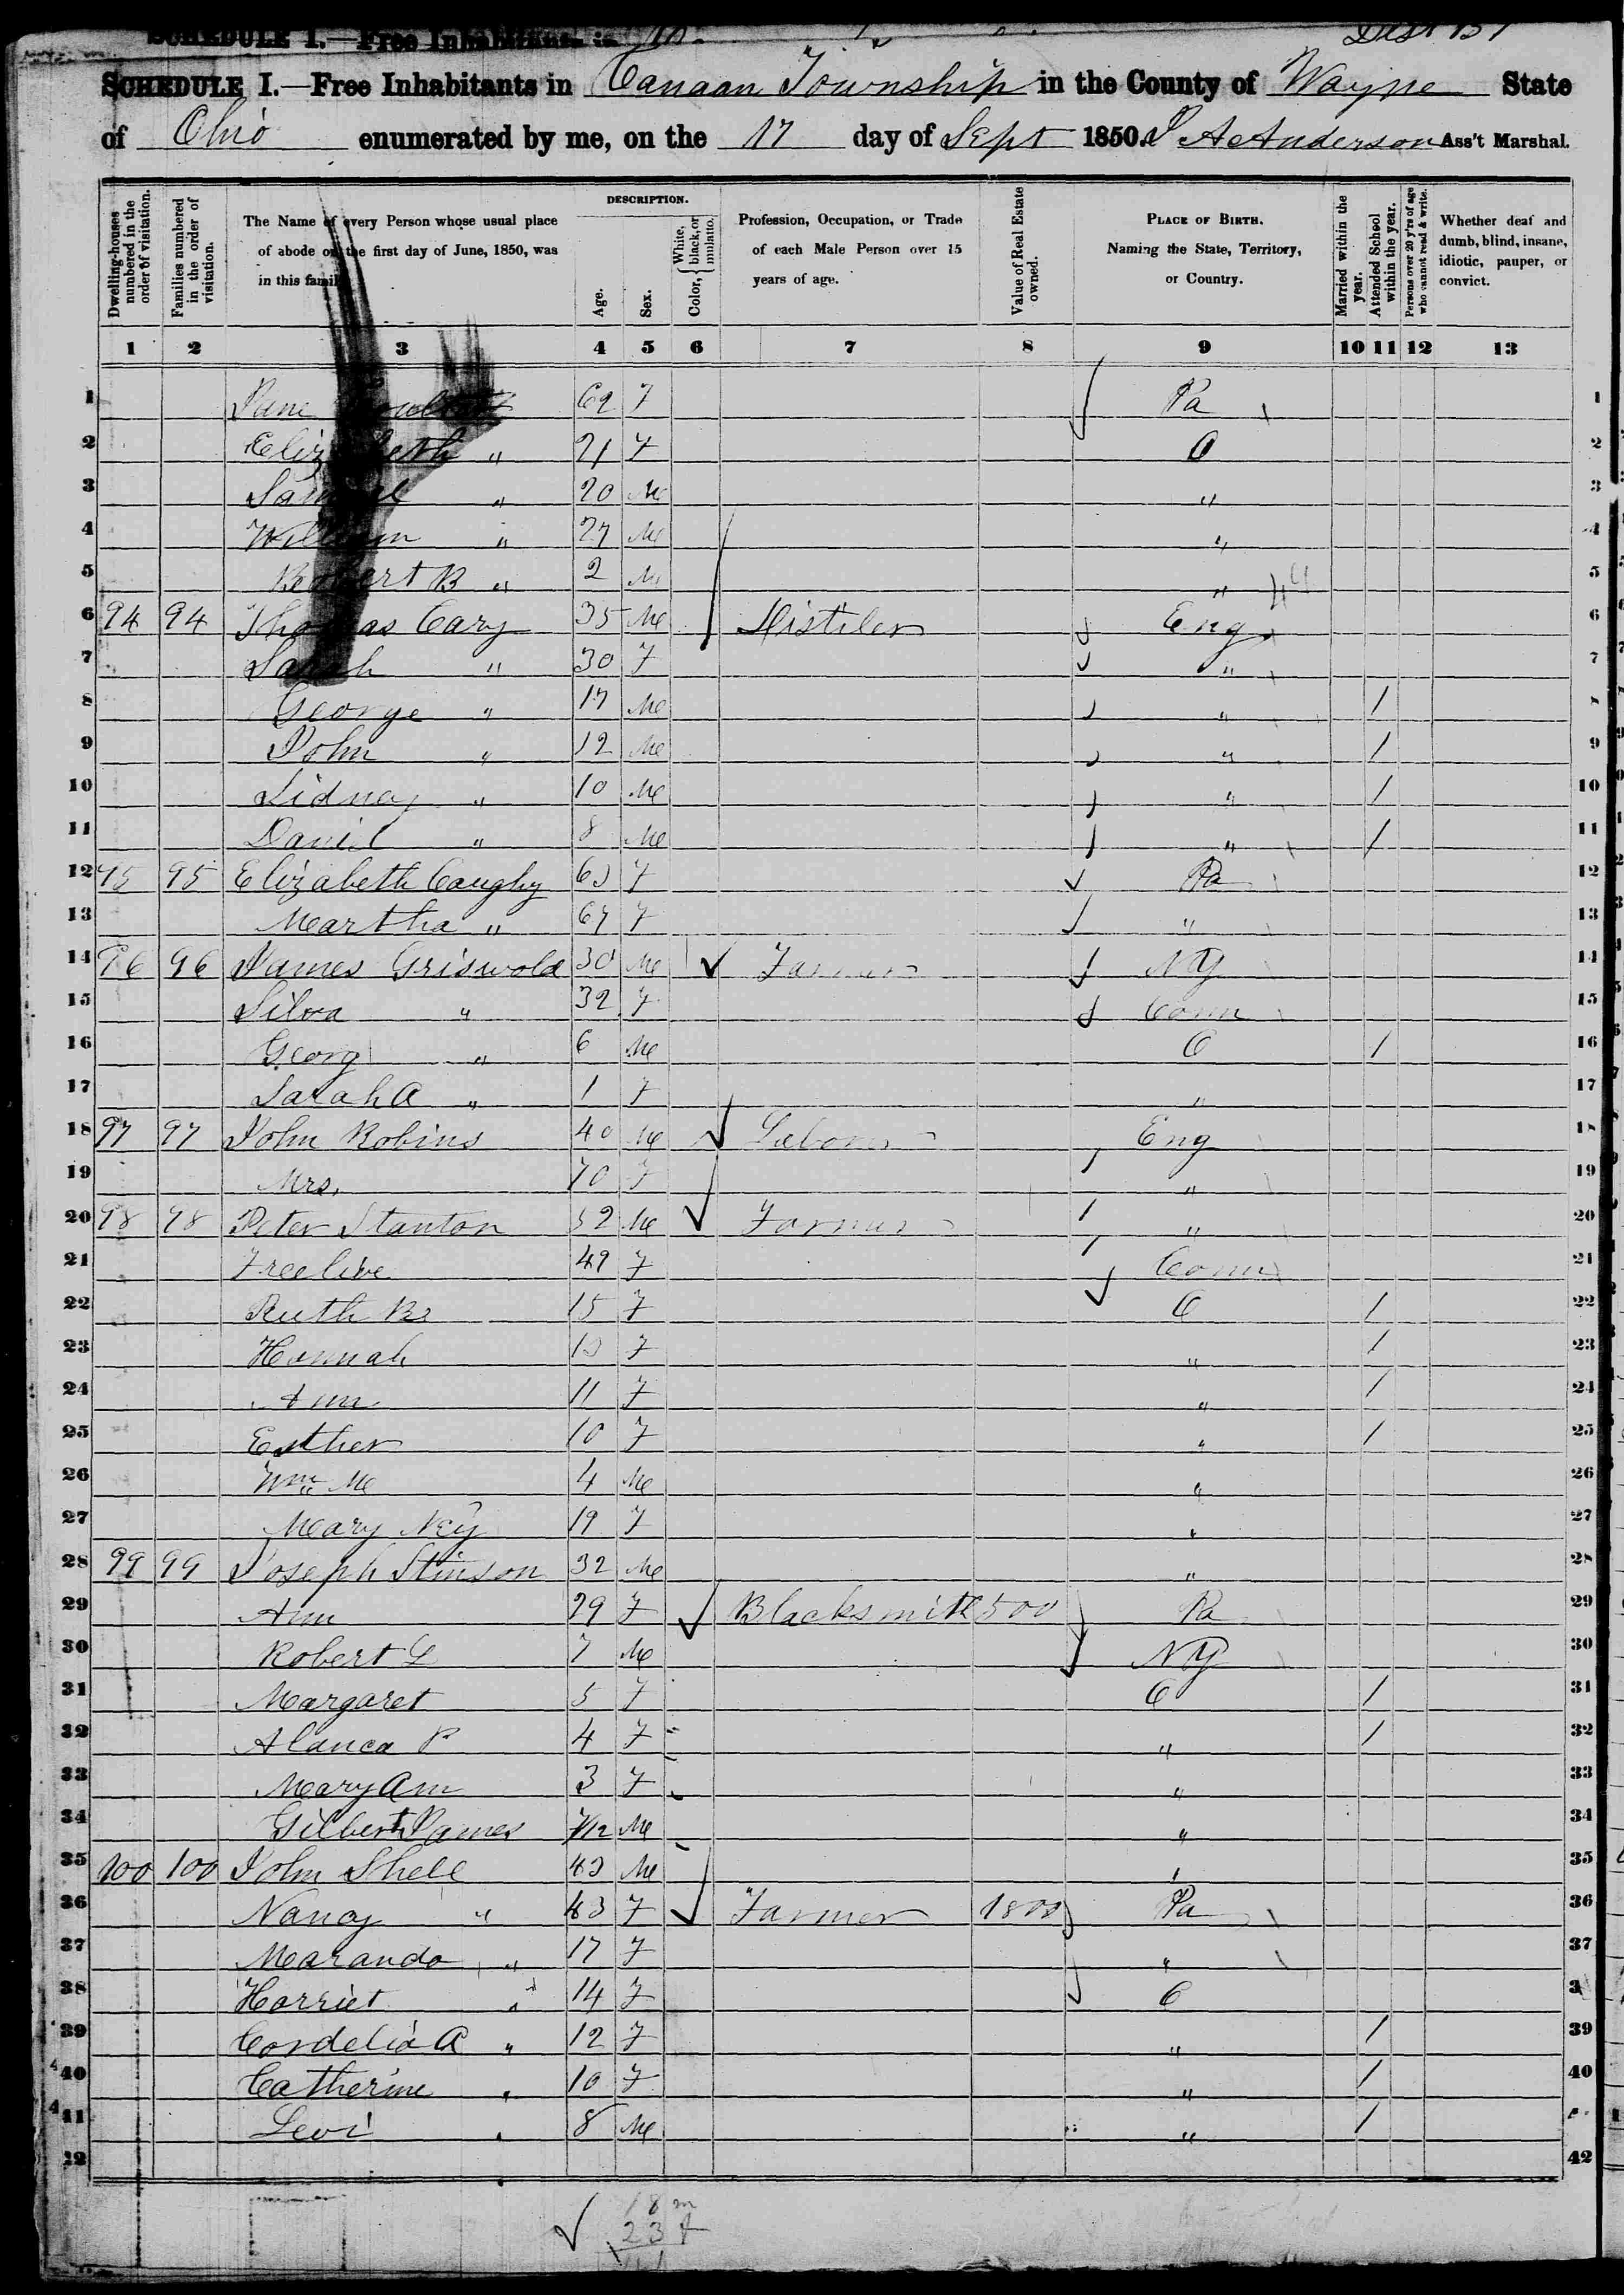 SCHEDULE I.—Free Inhabitants in
SCHEDULE I.—Free Inhabitants in Canaan Township in the County of Wayne State
of Ohio enumerated by me, on the 17 day of Sept 1850. A Anderson Ass't Marshal.
Dwelling-houses numbered in the order of visitation.
Families numbered in the order of visitation.
The Name of every Person whose usual place of abode on the first day of June, 1850, was in this family.
DESCRIPTION.
Age.
Sex.
Color, { White, black, or mulatto.
Profession, Occupation, or Trade of each Male Person over 15 years of age.
Value of Real Estate owned.
PLACE OF BIRTH. Naming the State, Territory, or Country.
Married within the year.
Attended School within the year.
Persons over 20 y'rs of age who cannot read & write.
Whether deaf and dumb, blind, insane, idiotic, pauper, or convict.
1 2 3 4 5 6 7 8 9 10 11 12 13
1 Jane 62 F Pa 1
2 Elizabeth " 21 F O 2
3 Samuel " 20 M " 3
4 William " 27 M " 4
5 Robert B " 2 M " 5
6 94 94 Thomas Cary 35 M Distiler Eng 6
7 Sarah " 30 F " 7
8 George " 17 M " / 8
9 John " 12 M " / 9
10 Sidney " 10 M " / 10
11 Daniel " 8 M " / 11
12 95 95 Elizabeth Caughy F Pa 12
13 Martha " 67 F " 13
14 96 96 James Griswold 30 M Farmer NY 14
15 Silva " 32 F Conn 15
16 Georg " 6 M O / 16
17 Sarah A " 1 F " 17
18 97 97 John Robins 40 M Labour Eng 18
19 Mrs. 70 F " 19
20 98 98 Peter Stanton 52 M Farmer " 20
21 Freelive 49 F Conn 21
22 Ruth 15 F O / 22
23 Hannah 13 F " / 23
24 Ann 11 F " / 24
25 Esther 10 F " / 25
26 Wm M 4 M " 26
27 Mary Ney 19 F " 27
28 99 99 Joseph Stinson 32 M " 28
29 Ann 29 F Blacksmith 500 Pa 29
30 Robert L 7 M NY 30
31 Margaret 5 F O / 31
32 Alanca P 4 F " / 32
33 Mary Ann 3 F " 33
34 Gilbert James 7/12 M " 34
35 100 100 John Shell 43 M " 35
36 Nancy " 43 F Farmer 1800 Pa 36
37 Maranda " 17 F " 37
38 Harriet " 14 F O 3
39 Cordelia A " 12 F " / 39
40 Catherine " 10 F " / 40
41 Levi " 8 M " /
42 42
18 m
23 f
41